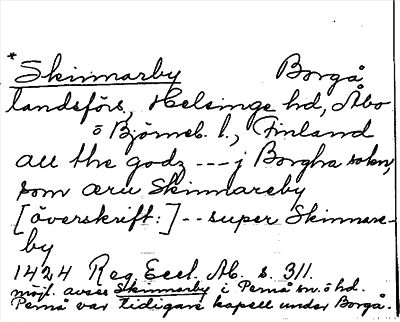 *Skinnarby Borgå
landsförs, Helsinge hd, Åbo
o Björneb. l., Finland
all the godz --- j Borgha sokn,
som æru Skinnareby
[överskrift:] -- super Skinnare-
by
1424 Reg. Eccl. Ab. s. 311.
möjl. avses Skinnarby i Pernå sn. o hd.
Pernå var tidigare kapell under Borgå.